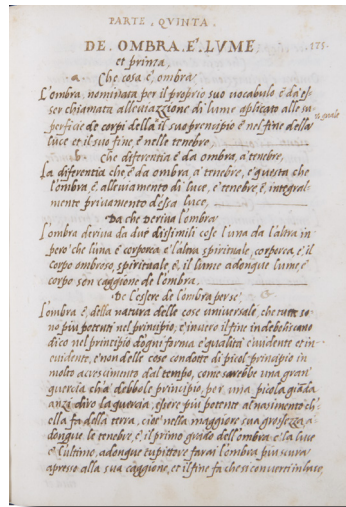 PARTE . QVINTA .
DE. OMBRA. E'. LVME 175.
et prima.
.a. Che cosa è, ombra
L'ombra, nominata per il proprio suo vocabulo è da es
ser chiamata alleviazzione di lume aplicato alle su
perficie de corpi della il suo prencipio è nel fine della
luce et il suo fine è nelle tenebre,
b. che diferentia è da ombra, a' tenebre,
La diferentia che è da ombra, a' tenebre, è questa che
l'ombra è alleviamento di luce, e' tenebre è, integral
mente privamento d'essa luce,
Da che deriva l'ombra
L'ombra deriva da due dissimili cose l'una da l'altra in
pero' che l'una è corporea e' l'altra spirituale, corporea, è, il
corpo ombroso, spirituale è, il lume adonque lume e'
corpo son caggione de l'ombra.
De l'essere de l'ombra per se'
L'ombra è, della natura delle cose universale, che tutte so
no piu potenti nel principio, e' inverso il fine indebelicano
dico nel principio d'ogni forma e' qualita' evidente et in
evidente, e' non delle cose condotte di picol' principio in
molto accrescimento dal tempo, come sarebbe una gran'
quercia cha' debbole principio, per una picola gianda
anzi diro la quercia, essere piu potente al nascimento ch'
ella fa della terra, cioè nella maggiore sua grossezza a
donque le tenebre, è, il primo grado dell'ombra e' la luce
è l'ultimo, adonque tu pittore farai l'ombra piu scura
apresso alla sua caggione, et il fine fa che si converti in luce,